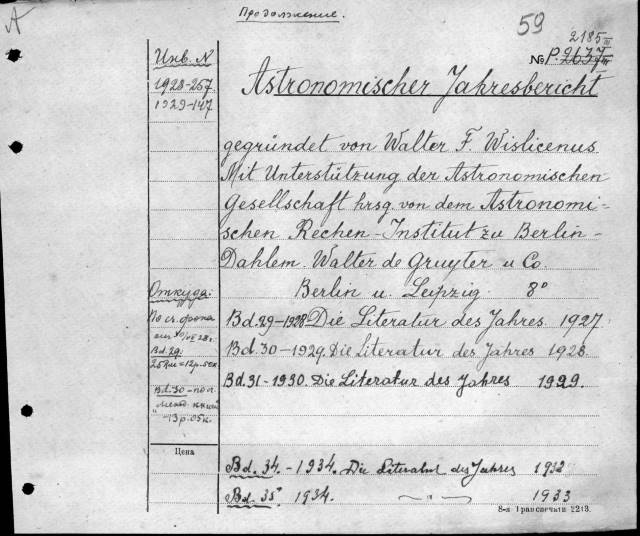 А
Продолжение.
59
2185 III
№ P. 2637 III
Инв. N
1928-257
1929-147
Astronomischer Jahresbericht
gegründet von Walter F. Wislicenus.
Mit Unterstützung der Astronomischen
Gesellschaft hrsg. von dem Astronomi-
schen Rechen-Institut zu Berlin-
Dahlem. Walter de Gruyter u Co.
Berlin u. Leipzig. 8°
Откуда:
По сч.
Bd. 29.
Bd. 29-1928. Die Literatur des Jahres 1927.
Bd. 30-1929. Die Literatur des Jahres 1928.
Bd. 31-1930. Die Literatur des Jahres 1929.
Bd. 30-по сч.
"Межд. книги"
-13р.05к.
Цена
Bd. 34.-1934. Die Literatur des Jahres 1932
Bd. 35. 1934. —"— 1933
8-я Транспечати 2213.